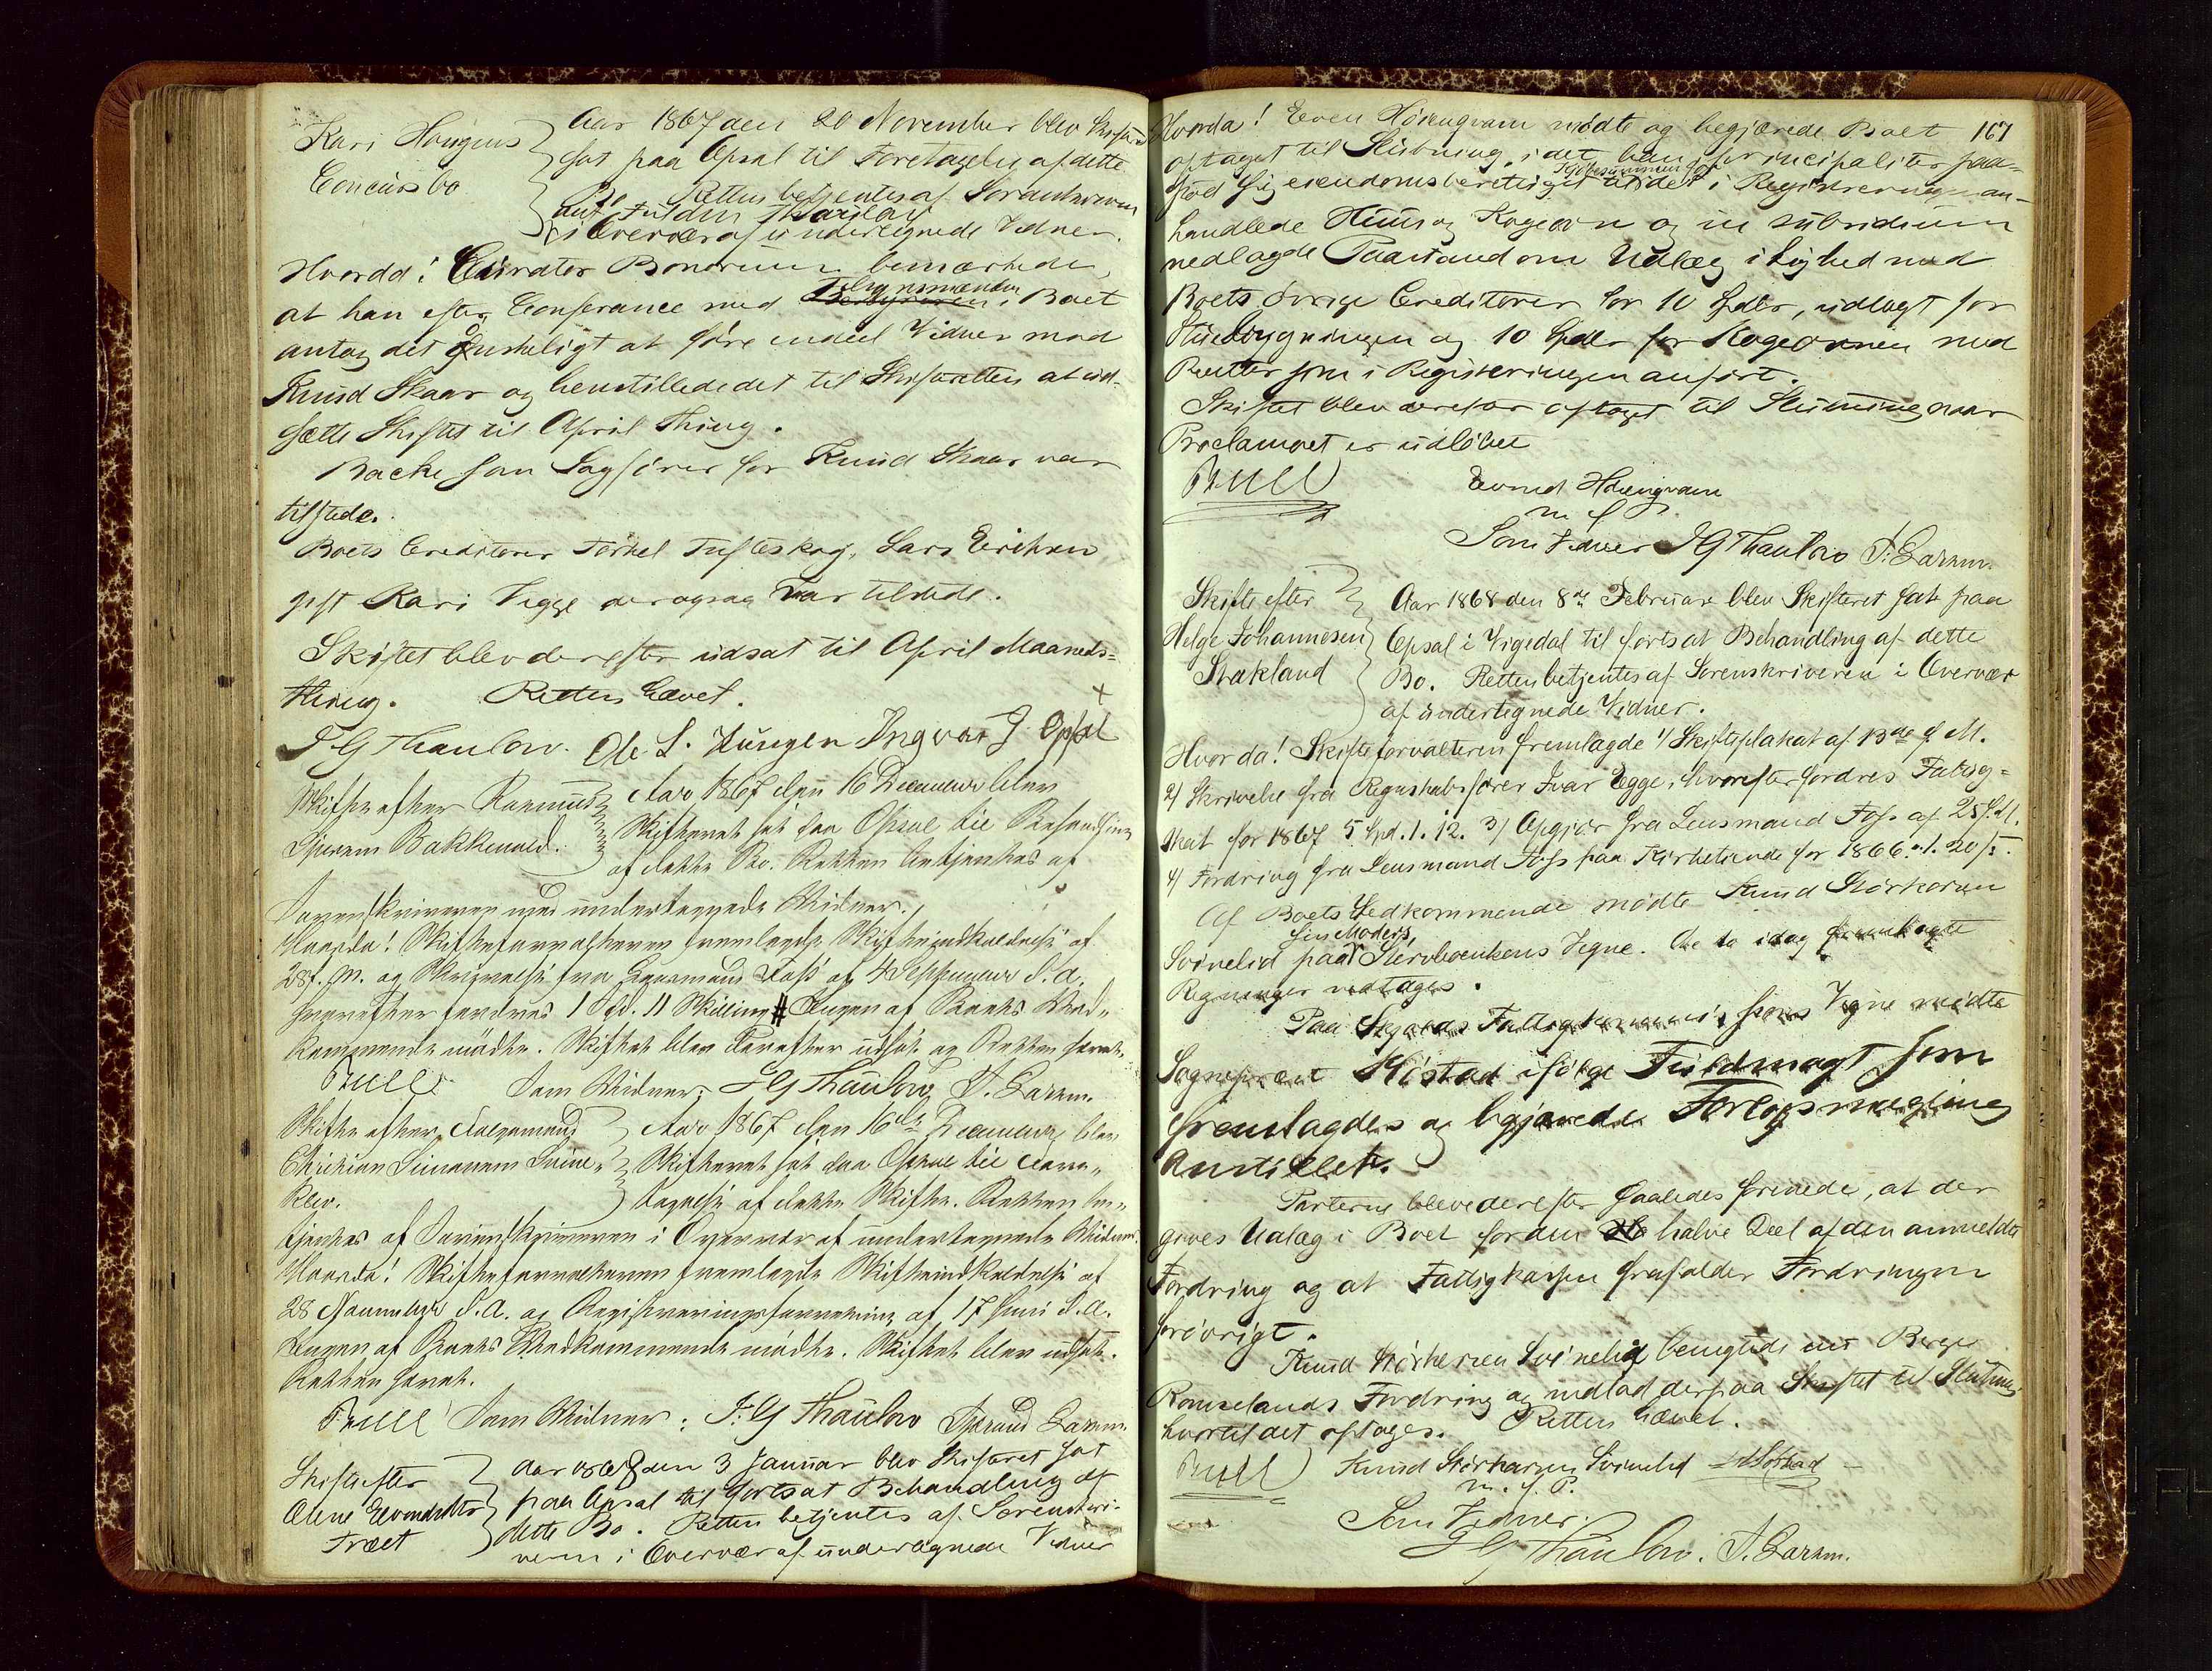 Kari Haugens
Concursbo
Aar 1867 den 20 November blev Skifteret
sat paa Opsal til Foretagelse af dette
Bo Retten betjentes af Sorenskriveren
ved Fuldm Thaulow
i Overvær af undertegnede Vidner.
Hvorda! Curator Bonorum bemærkede,
at han efter Conferance med Lensmanden i Boet
antog det ønskeligt at føre endeel Vidner mod
Knud Skaar og henstillede det til Skifteretten at ud-
sætte Skiftet til April Thing.
Backe som Sagfører for Knud Skaar var
tilstede.
Boets Creditorer Torkel Tufteskog, Lars Erichsen
gift Kari Vegge derogsaa var tilstede.
Skiftet blev derefter udsat til April Maaneds-
thing. Retten hævet.
J G Thaulow. Ole L. Haugen Ingvar J. Opsal
Skifte efter Rasmus
Bakkerud.
Aar 1867 den 16 December blev
Skifteret sat paa Opsal til Behandling
af dette Bo. Retten betjentes af
Sorenskriveren med undertegnede Vidner.
Hvorda! Skifteforvalteren fremlagde Skifteindkaldelse af
28 f. M. og Skrivelse fra Lensmand Foss af 4 September d. A.
hvorefter fordres 1 Spd. 11 Skilling # Ingen af Boets Ved-
kommende mødte. Skiftet blev derefter udsat og Retten hævet.
Bull Som Vidner: J G Thaulow J. Larsen.
Skifte efter
Christian Simonsen
Aar 1867 den 16de December blev
Skifteret sat paa Opsal til Fore-
tagelse af dette Skifte. Retten be-
tjentes af Sorenskriveren i Overvær af undertegnede Vidner.
Hvorda! Skifteforvalteren fremlagde Skifteindkaldelse af
28 November d. A. og Registreringsforretning af 17 Juni d. A.
Ingen af Boets Vedkommende mødte. Skiftet blev udsat.
Retten hævet.
Bull Som Vidner: J. G Thaulow Larsen.
Skifte efter
Olene Evensdatter
Træet
Aar 1868 den 3 Januar blev Skifteret sat
paa Opsal til fortsat Behandling af
dette Bo. Retten betjentes af Sorenskri-
veren i Overvær af undertegnede Vidner
167
Hvorda! Even mødte og begjærede Boet
optaget til Slutning, idet han principaliter paa-
stod sig eiendomsberettiget til det i Registreringen om-
handlede Huus og Kogeovn og in subsidium
nedlagde Paastand om Udlæg i Lighed med
Boets øvrige Creditorer for 10 Spdlr, udlagt for
Stuebygningen og 10 Spdlr for Kogeovnen med
Renter som i Registreringen anført.
Skiftet blev derefter optaget til Slutning naar
Proclamaet er udløbet
Bull
m. f. P.
Som Vidner J G Thaulow J. Larsen.
Skifte efter
Helge Johannesen
Stakland
Aar 1868 den 8de Februar blev Skifteret sat paa
Opsal i Sigedal til fortsat Behandling af dette
Bo. Retten betjentes af Sorenskriveren i Overvær
af undertegnede Vidner.
Hvorda! Skifteforvalteren fremlagde 1/ Skifteplakat af 13de f. M.
2/ Skrivelse fra Regnskabsfører Ivar Egge, hvorefter fordres Fattig-
skat for 1867 5 Spd. 1. 12. 3/ Opgjør fra Lensmand Foss af 25 f. M.
4/ Fordring fra Lensmand Foss paa Kirketiende for 1866: 1. 20 ß.
Af Boets Vedkommende mødte Knud Størkersen
Svinelid paa sin Moders, Stervboenkens Vegne. De to idag fremlagte
Regninger vedtages.
Paa Sigdals Fattigkommissions Vegne mødte
Sognepræst Høstad ifølge Fuldmagt som
fremlagdes og begjærede Forligsmægling
anstillet.
Parterne bleve derefter saaledes forenede, at der
gives Udlæg i Boet for den halve Deel af den anmeldte
Fordring og at Fattigkassen frafalder Fordringen
forøvrigt.
Knud Størkersen Svinelid benegtede
Fordring og indlod derpaa Skiftet til Slutning
hvortil det optages. Retten hævet.
Bull Knud Størkersen Svinelid Høstad
m. f. P.
Som Vidner:
J G Thaulow. J. Larsen.